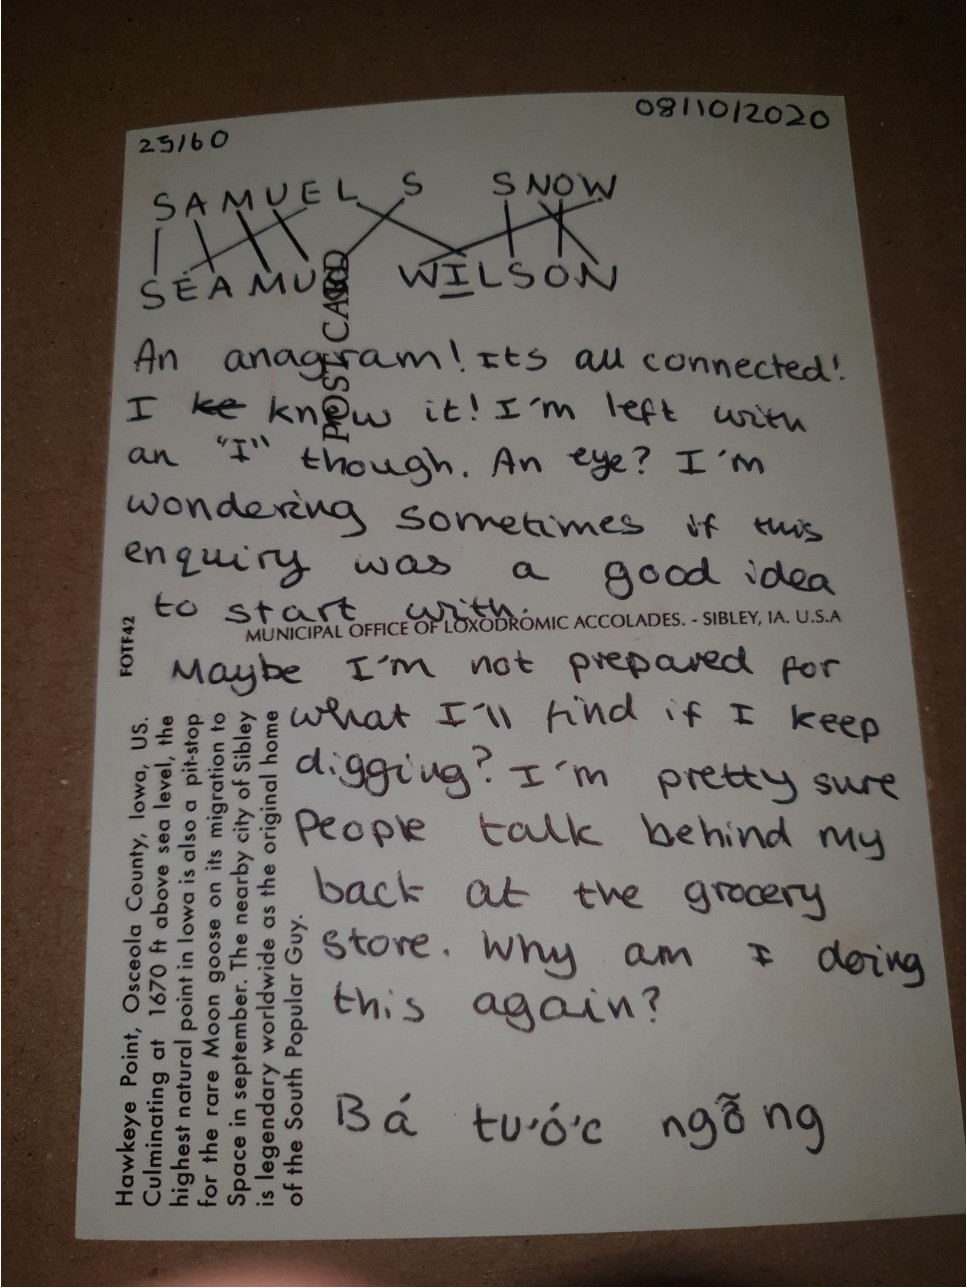 25/60
08/10/2020
SAMUEL S SNOW
SEAMUS WILSON
An anagram! Its all connected!
I ke knew it! I'm left with
an "I" though. An eye? I'm
wondering sometimes if this
enquiry was a good idea
to start with.
Maybe I'm not prepared for
what I'll find if I keep
digging? I'm pretty sure
People talk behind my
back at the grocery
store. Why am I doing
this again?
Bá tước ngỗng
POST CARD
MUNICIPAL OFFICE OF LOXODROMIC ACCOLADES. - SIBLEY, IA. U.S.A
FOTF42
Hawkeye Point, Osceola County, Iowa, US.
Culminating at 1670 ft above sea level, the
highest natural point in Iowa is also a pit-stop
for the rare Moon goose on its migration to
Space in september. The nearby city of Sibley
is legendary worldwide as the original home
of the South Popular Guy.